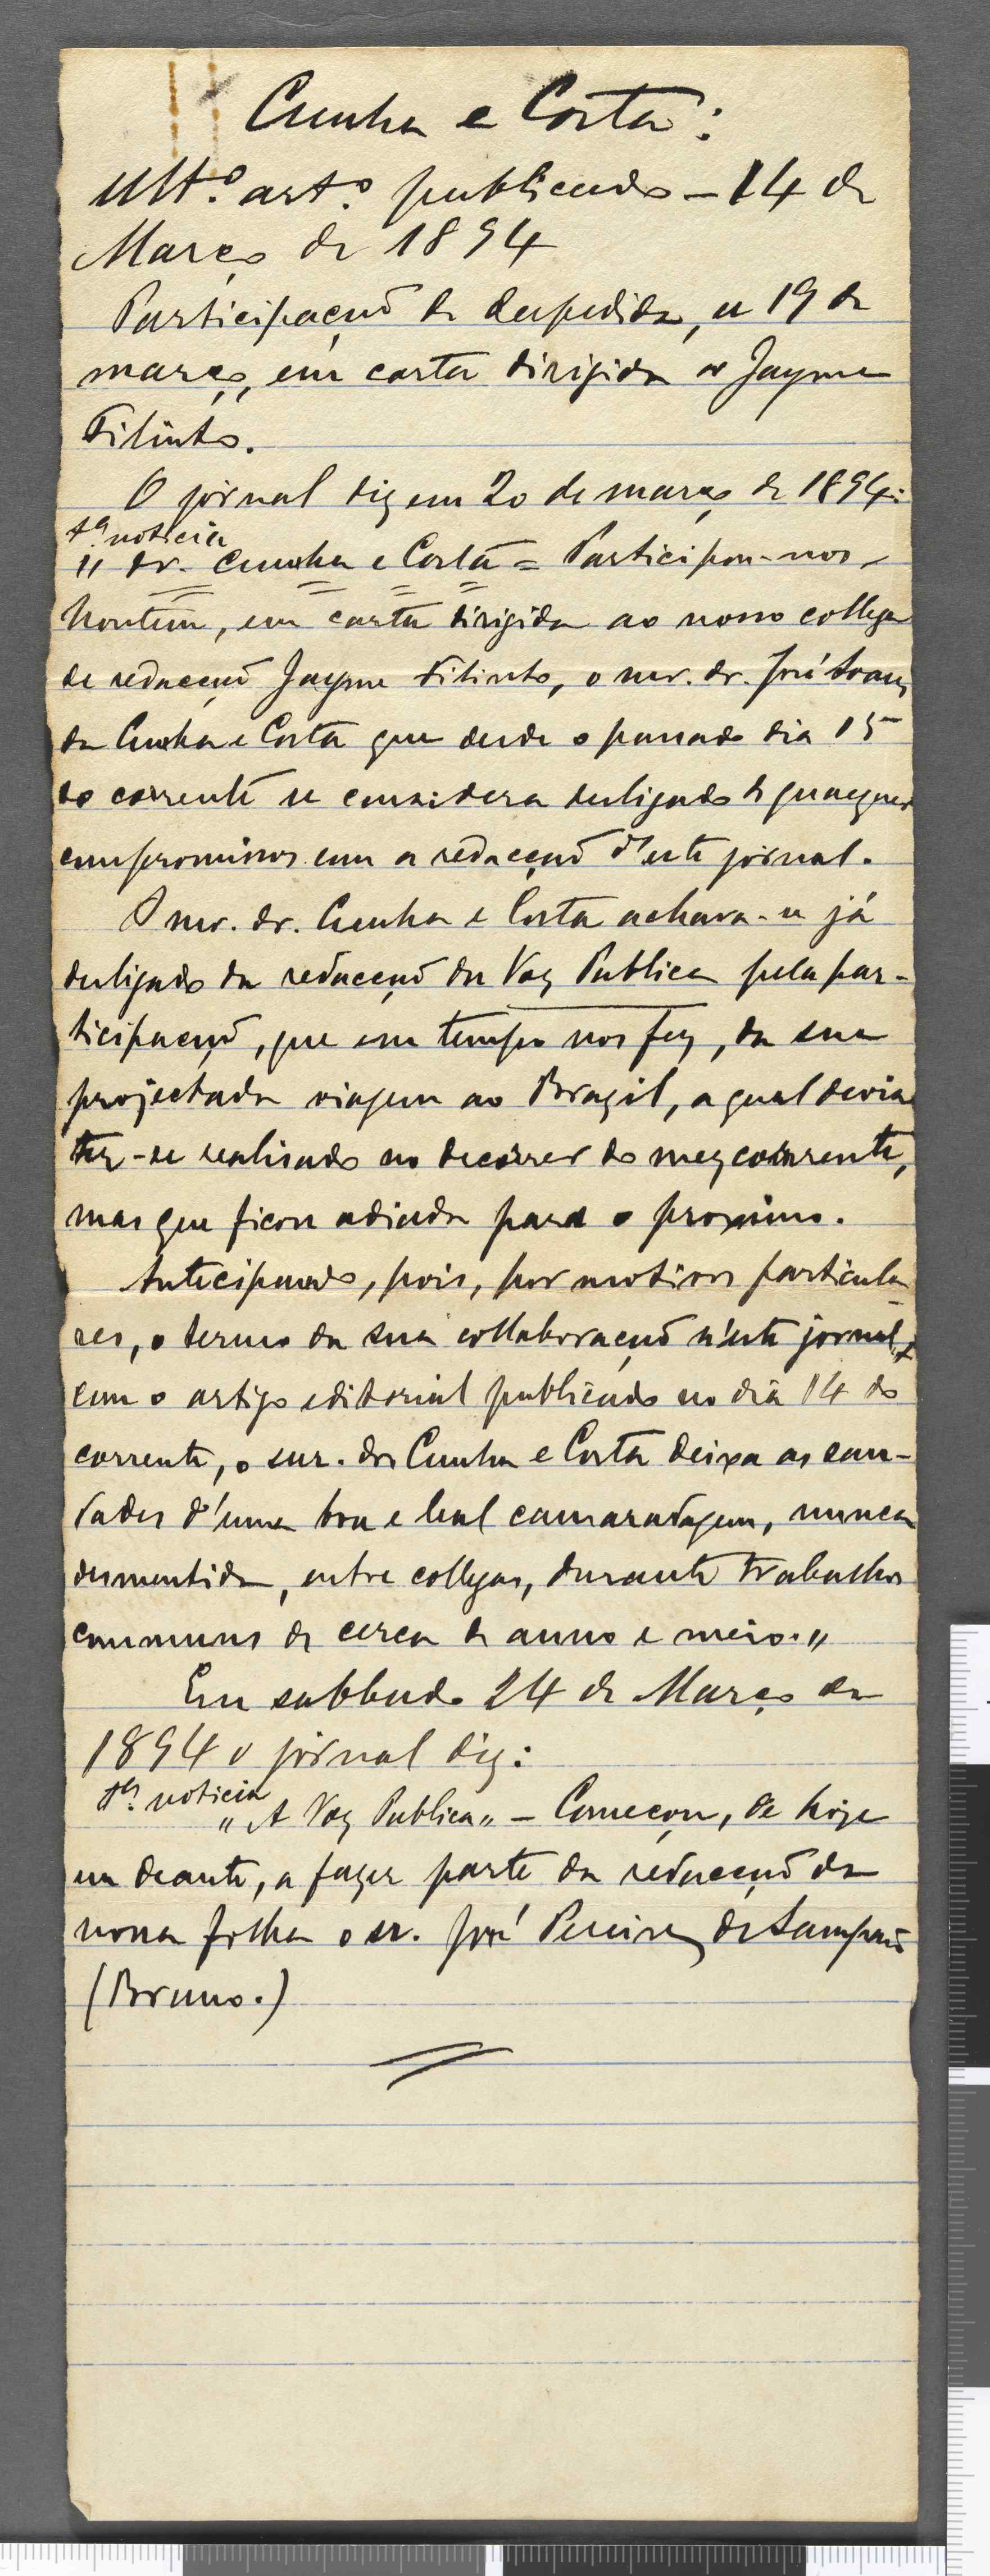 Cunha e Costa:
Ult.º art.º publicado – 14 de
Março de 1894
Participação de despedida, a 19 de
março, em carta dirigida a Jayme
Filinto.
O jornal diz em 20 de março de 1894:
1ª noticia
" dr. Cunha e Costa = Participou-nos,
hontem, em carta dirigida ao nosso collega
de redacção Jayme Filinto, o snr. dr. José Soares
da Cunha e Costa que desde o passado dia 15
do corrente se considera desligado de quaesquer
compromissos com a redacção d'este jornal.
O snr. dr. Cunha e Costa achava-se já
desligado da redacção da Voz Publica pela par-
ticipação, que em tempo nos fez, da sua
projectada viagem ao Brazil, a qual devia
ter-se realisado no decorrer do mez corrente,
mas que ficou adiada para o proximo.
Antecipando, pois, por motivos particula-
res, o termo da sua collaboração n'este jornal,
com o artigo editorial publicado no dia 14 do
corrente, o snr. dr. Cunha e Costa deixa as sau-
dades d'uma boa e leal camaradagem, nunca
desmentida, entre collegas, durante trabalhos
communs de cerca de anno e meio."
Em sabbado 24 de Março de
1894 o jornal diz:
1ª noticia
"A Voz Publica" – Começou, de hoje
em deante, a fazer parte da redacção da
nossa folha o sr. José Pereira de Sampaio
(Bruno.)